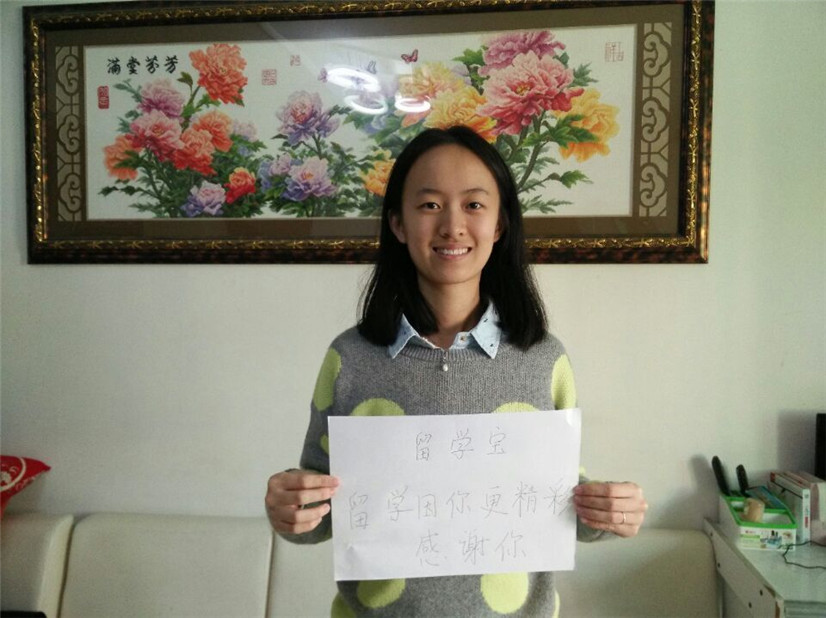 滿堂芬芳
留学宝
留学因你更精彩
感谢你